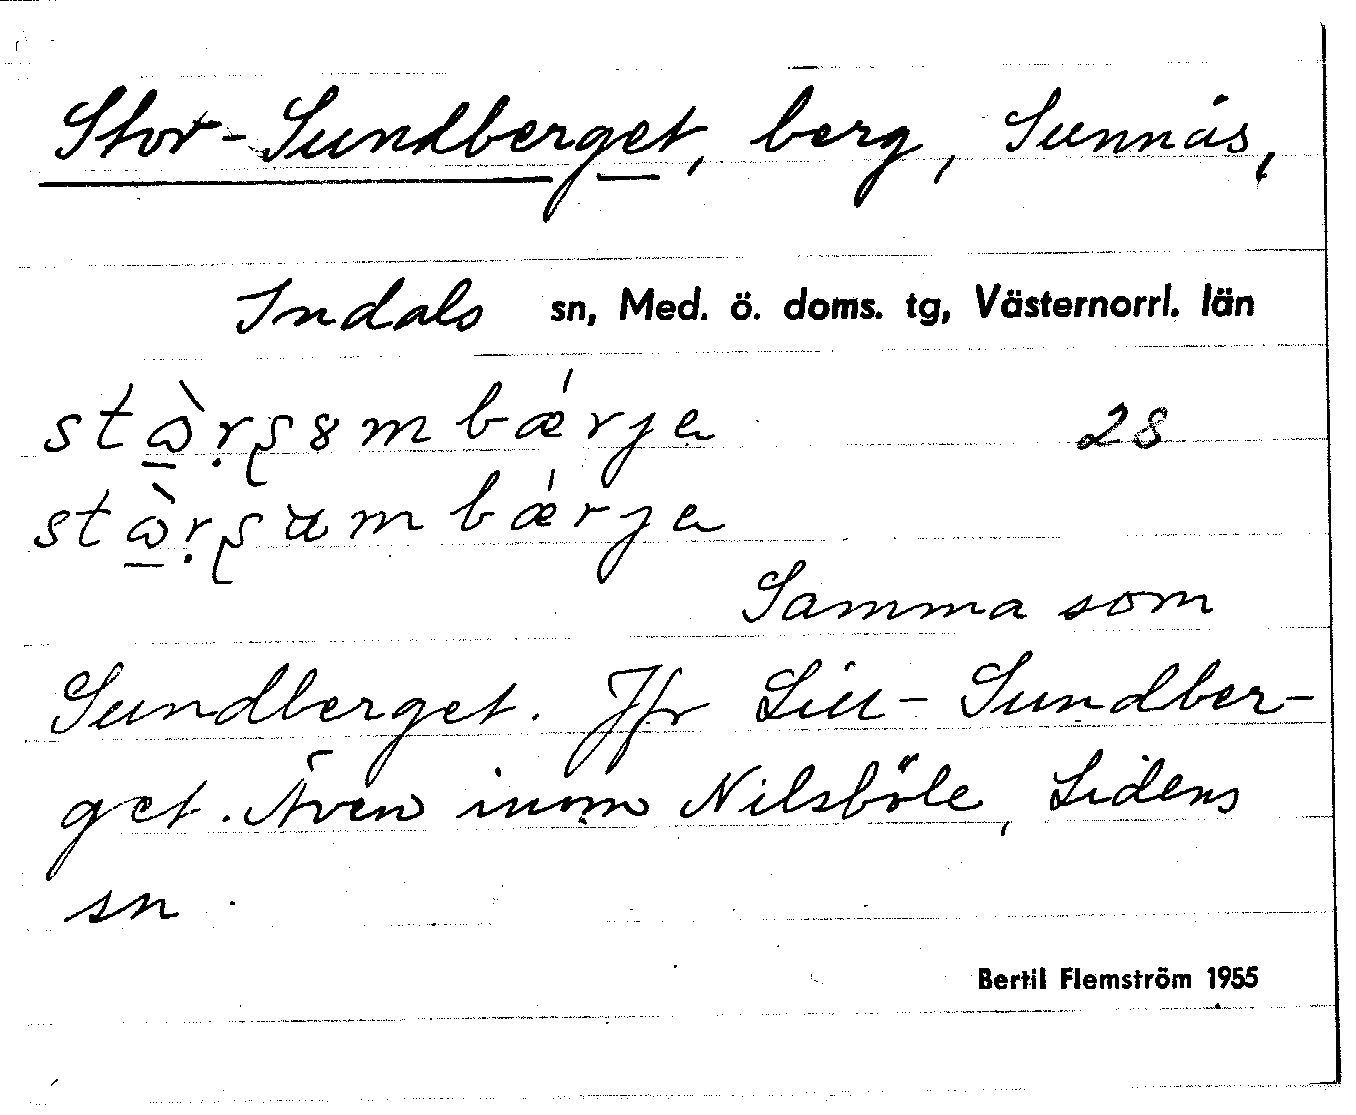 Stor-Sundberget, berg, Sunnås,
Indals sn, Med. ö. doms. tg, Västernorrl. län
28
Samma som
Sundberget. Jfr Lill-Sundber-
get. Även inom Nilsböle, Lidens
sn.
Bertil Flemström 1955